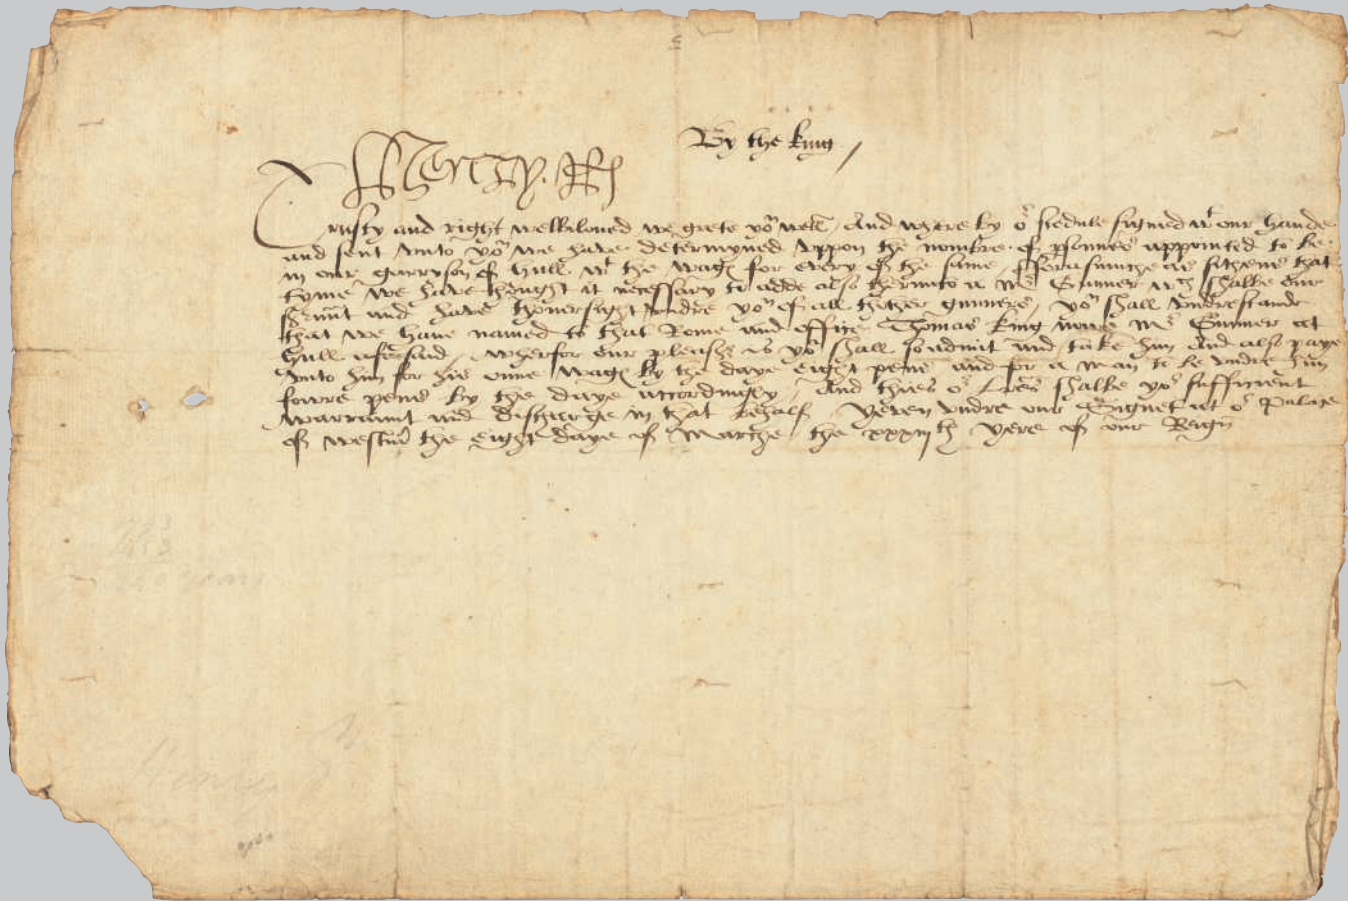 By the king
Henry R
Trusty and right welbiloued we grete yoᵘ well / And where by oʳ scedule signed wᵗ our hande
and sent vnto yoᵘ we have determyned vppon the nombre of psonnes appointed to be
in our garryson of Hull wᵗ the wag for every of the same / fforasmuche as sithens that
tyme we have thought it necessary to adde also therunto a Mʳ Gunner wᶜʰ shalbe our
sᵉruᵃnt and have thoversight vndre yoᵘ of all thother gunners / yoᵘ shall vndrestande
that we have named to that Rome and office Thomas King nowe Mʳ Gunner at
Hull aforsaid / wherfor our pleasʳ is yoᵘ shall so admit and take him And also paye
vnto him for his owne wag by the daye eight pens and for a man to be vndre him
fowre pens by the daye accordingly / And thies oʳ lres shalbe yoʳ sufficient
warraunt and discharge in that behalf / Yeven vndre our Signet at oʳ Palace
of westm the eight daye of Marche the xxxiijth yere of our Reign
Henry 8